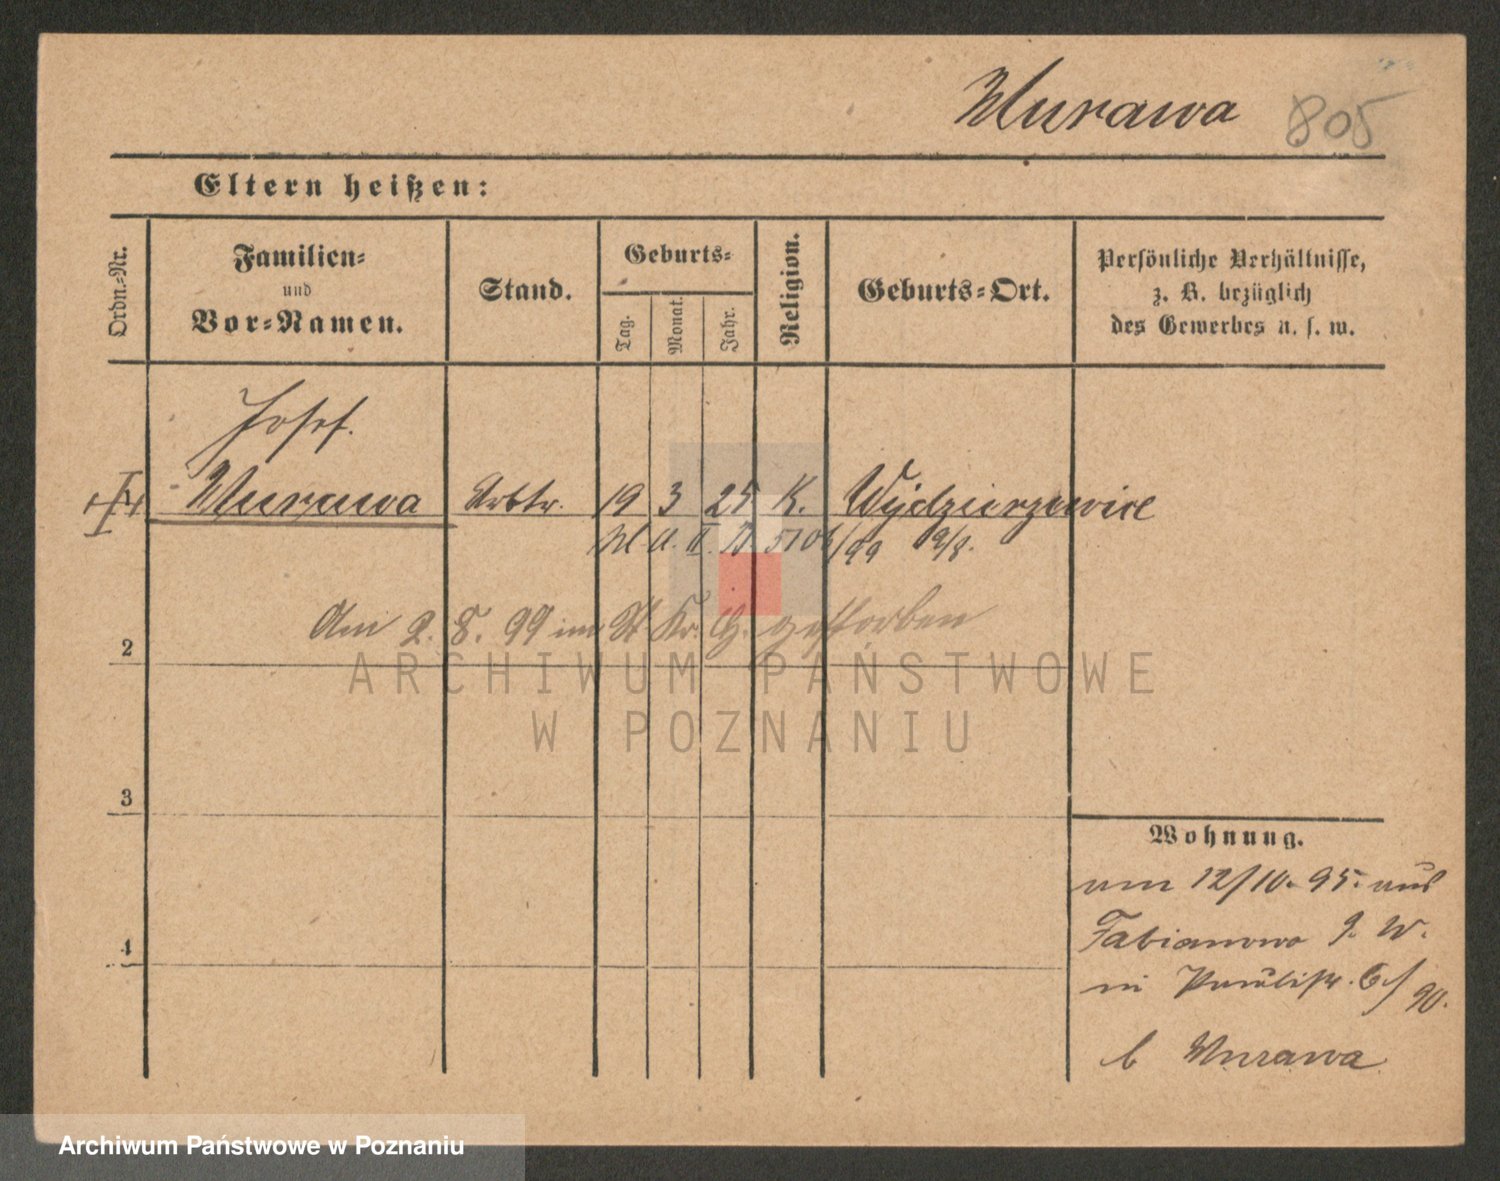 Murawa 805
Eltern heißen:
Ordn.-Nr.
Familien-
und
Vor-Namen.
Stand.
Geburts-
Tag.
Monat.
Jahr.
Religion.
Geburts-Ort.
Persönliche Verhältnisse,
z. B. bezüglich
des Gewerbes u. s. w.
Josef.
Murawa Arbtr. 19 3 25 K. Wydzierzewice
5106/99 9/8.
Am 2. 8. 99 im St Kr. H. gestorben
2
ARCHIWUM PAŃSTWOWE
W POZNANIU
3
4
Wohnung.
am 12/10. 95. aus
Fabianowo
in Paulistr.
b Murawa
Archiwum Państwowe w Poznaniu